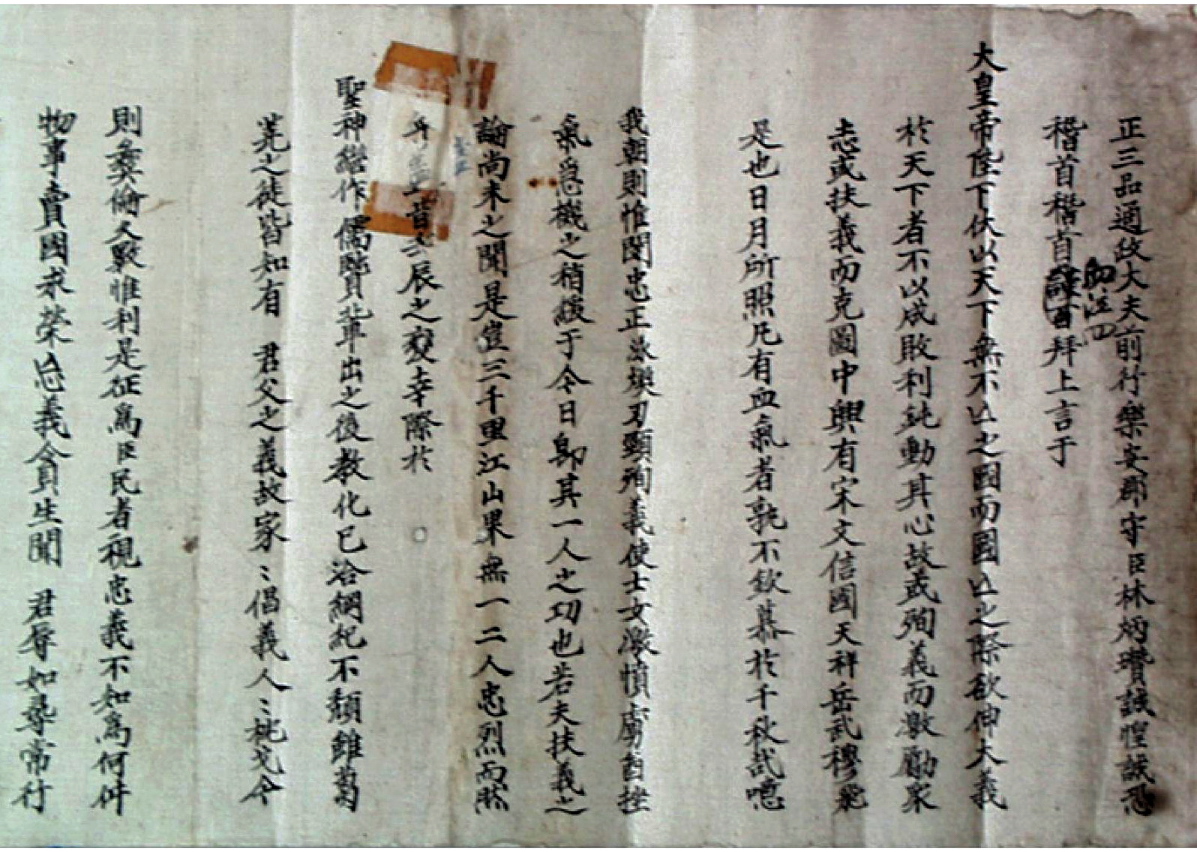 正三品通政大夫前行樂安郡守臣林炳瓚誠惶誠恐
稽首稽首拜上言于
大皇帝陛下伏以天下無不亡之國而國亡之際欲伸大義
於天下者不以成敗利鈍動其心故或殉義而激勵衆
志或扶義而克圖中興有宋文信國天祥岳武穆飛
是也日月所照凡有血氣者孰不欽慕於千秋哉噫
我朝則惟閔忠正泳煥刃頸殉義使士女激憤虜酋挫
氣急機之稍緩于今日卽其一人之功也若夫扶義之
論尚未之聞是豈三千里江山果無一二人忠烈而然
昔壬辰之變幸際於
聖神繼作儒賢輩出之後敎化已洽綱紀不頹雖蒭
蕘之徒皆知有 君父之義故家〻倡義人〻挑戈今
則彜倫久斁惟利是征爲臣民者視忠義不知爲何件
物事賣國求榮亡義貪生聞 君辱如尋常行